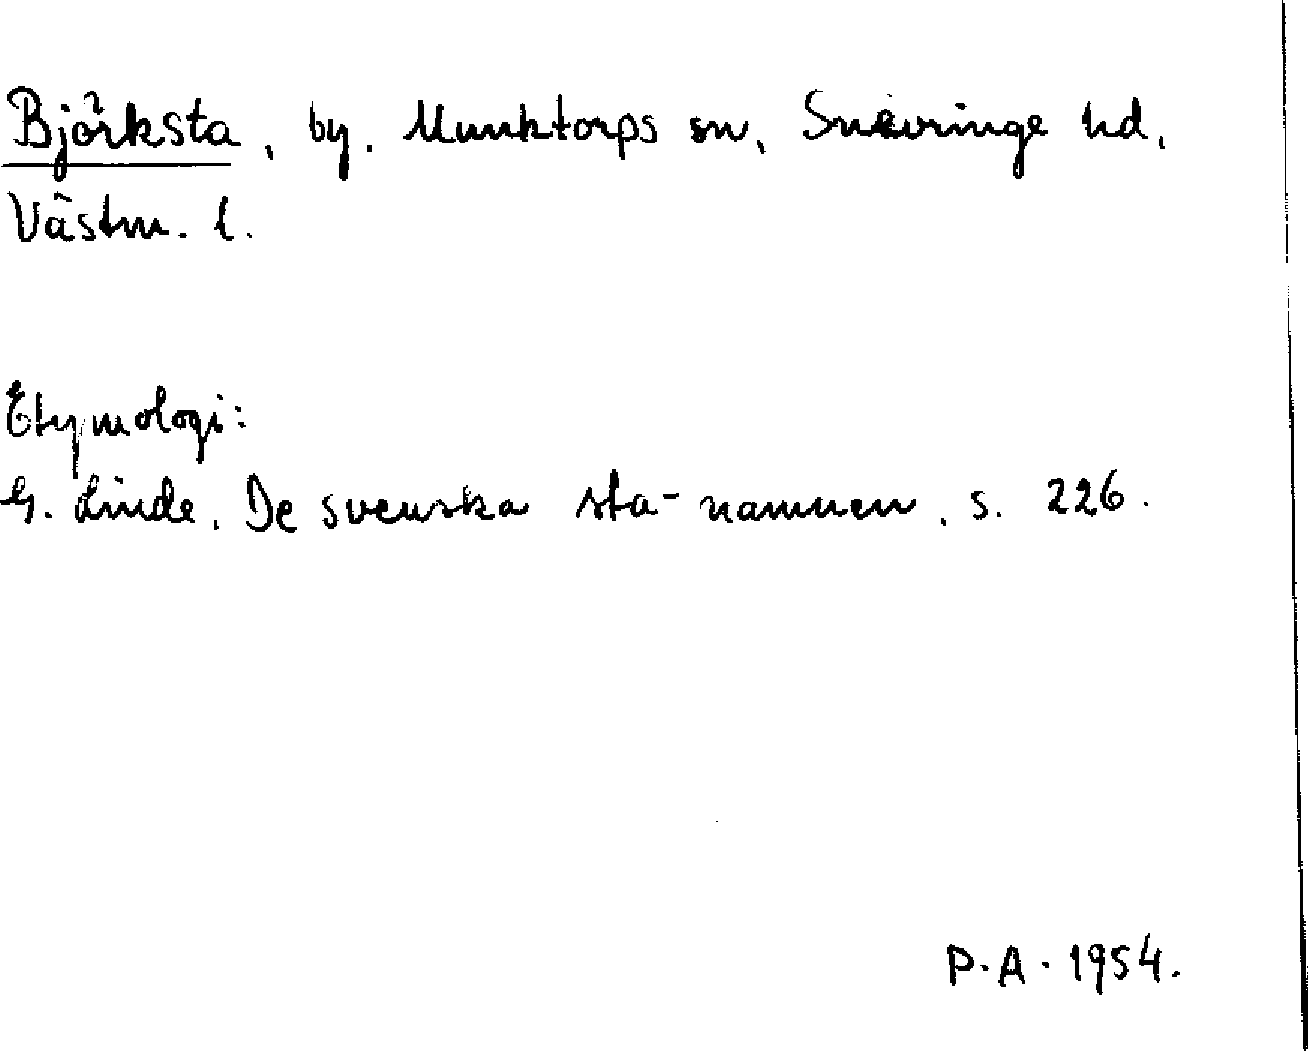 Björksta, by. Munktorps sn, Snevringe hd,
Västm. l.
Etymologi:
G. Linde, De svenska sta-namnen, s. 226.
P.A. 1954.